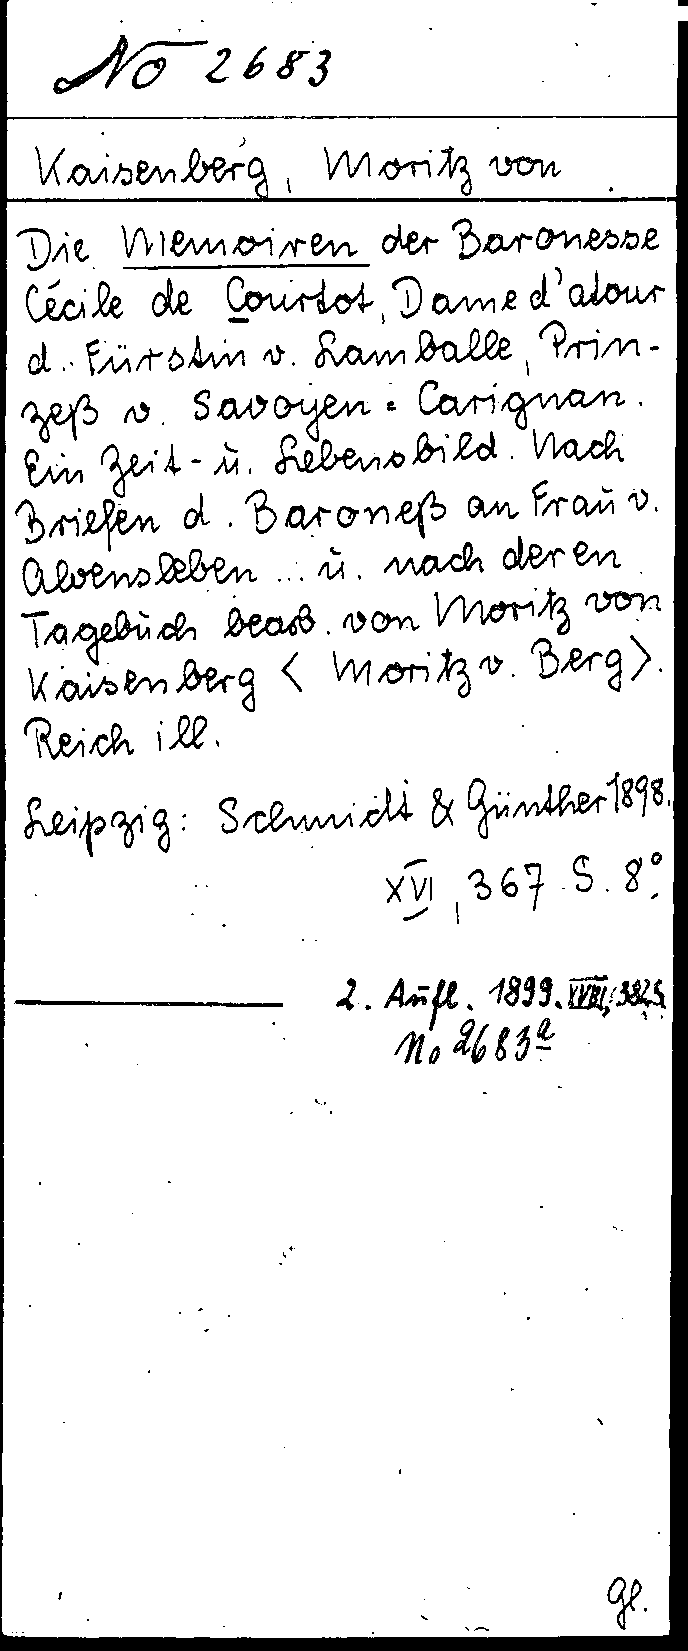 No 2683
Kaisenberg, Moritz von
Die Memoiren der Baronesse
Cécile de Courtot, Dame d'atour
d. Fürstin v. Lamballe, Prin-
zeß v. Savoyen = Carignan.
Ein Zeit- u. Lebensbild. Nach
Briefen d. Baroneß an Frau v.
Alvensleben ... u. nach deren
Tagebuch bearb. von Moritz von
Kaisenberg < Moritz v. Berg>.
Reich ill.
Leipzig: Schmidt & Günther 1898.
XVI, 367 S. 8°.
2. Aufl. 1899. XVIII, 382 S.
No 2683a
Gl.